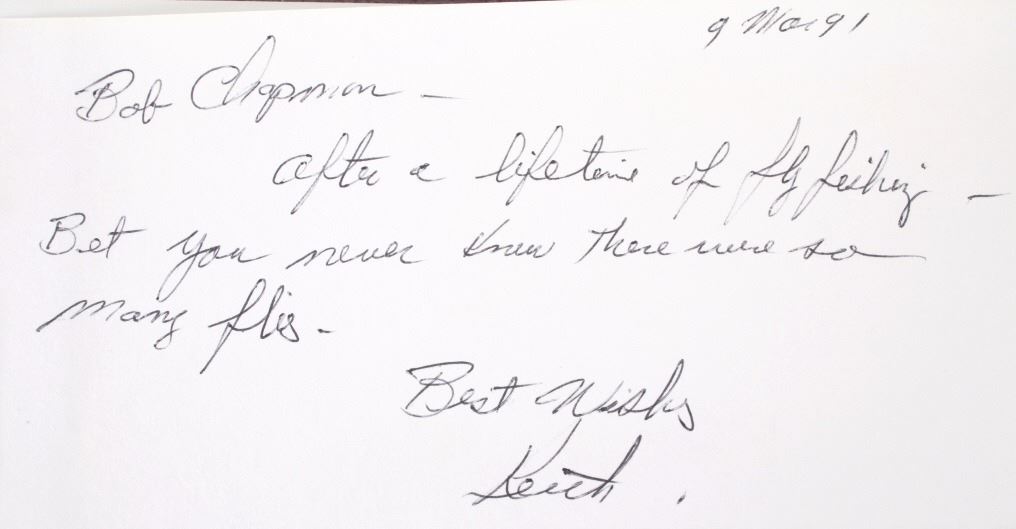 9 Mar 91
Bob Chapman -
After a lifetime of fly fishing -
Bet you never knew there were so
many flies -
Best Wishes
Keith.